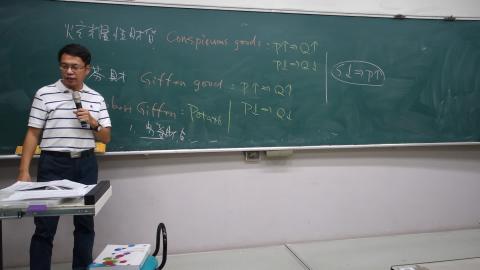 炫耀性財貨 Conspicuous goods : P↑⇒Q↑
P↓⇒Q↓
S↓⇒P↑
芬財 Giffen good : P↑⇒Q↑
Robert Giffen : Potato P↓⇒Q↓
1.